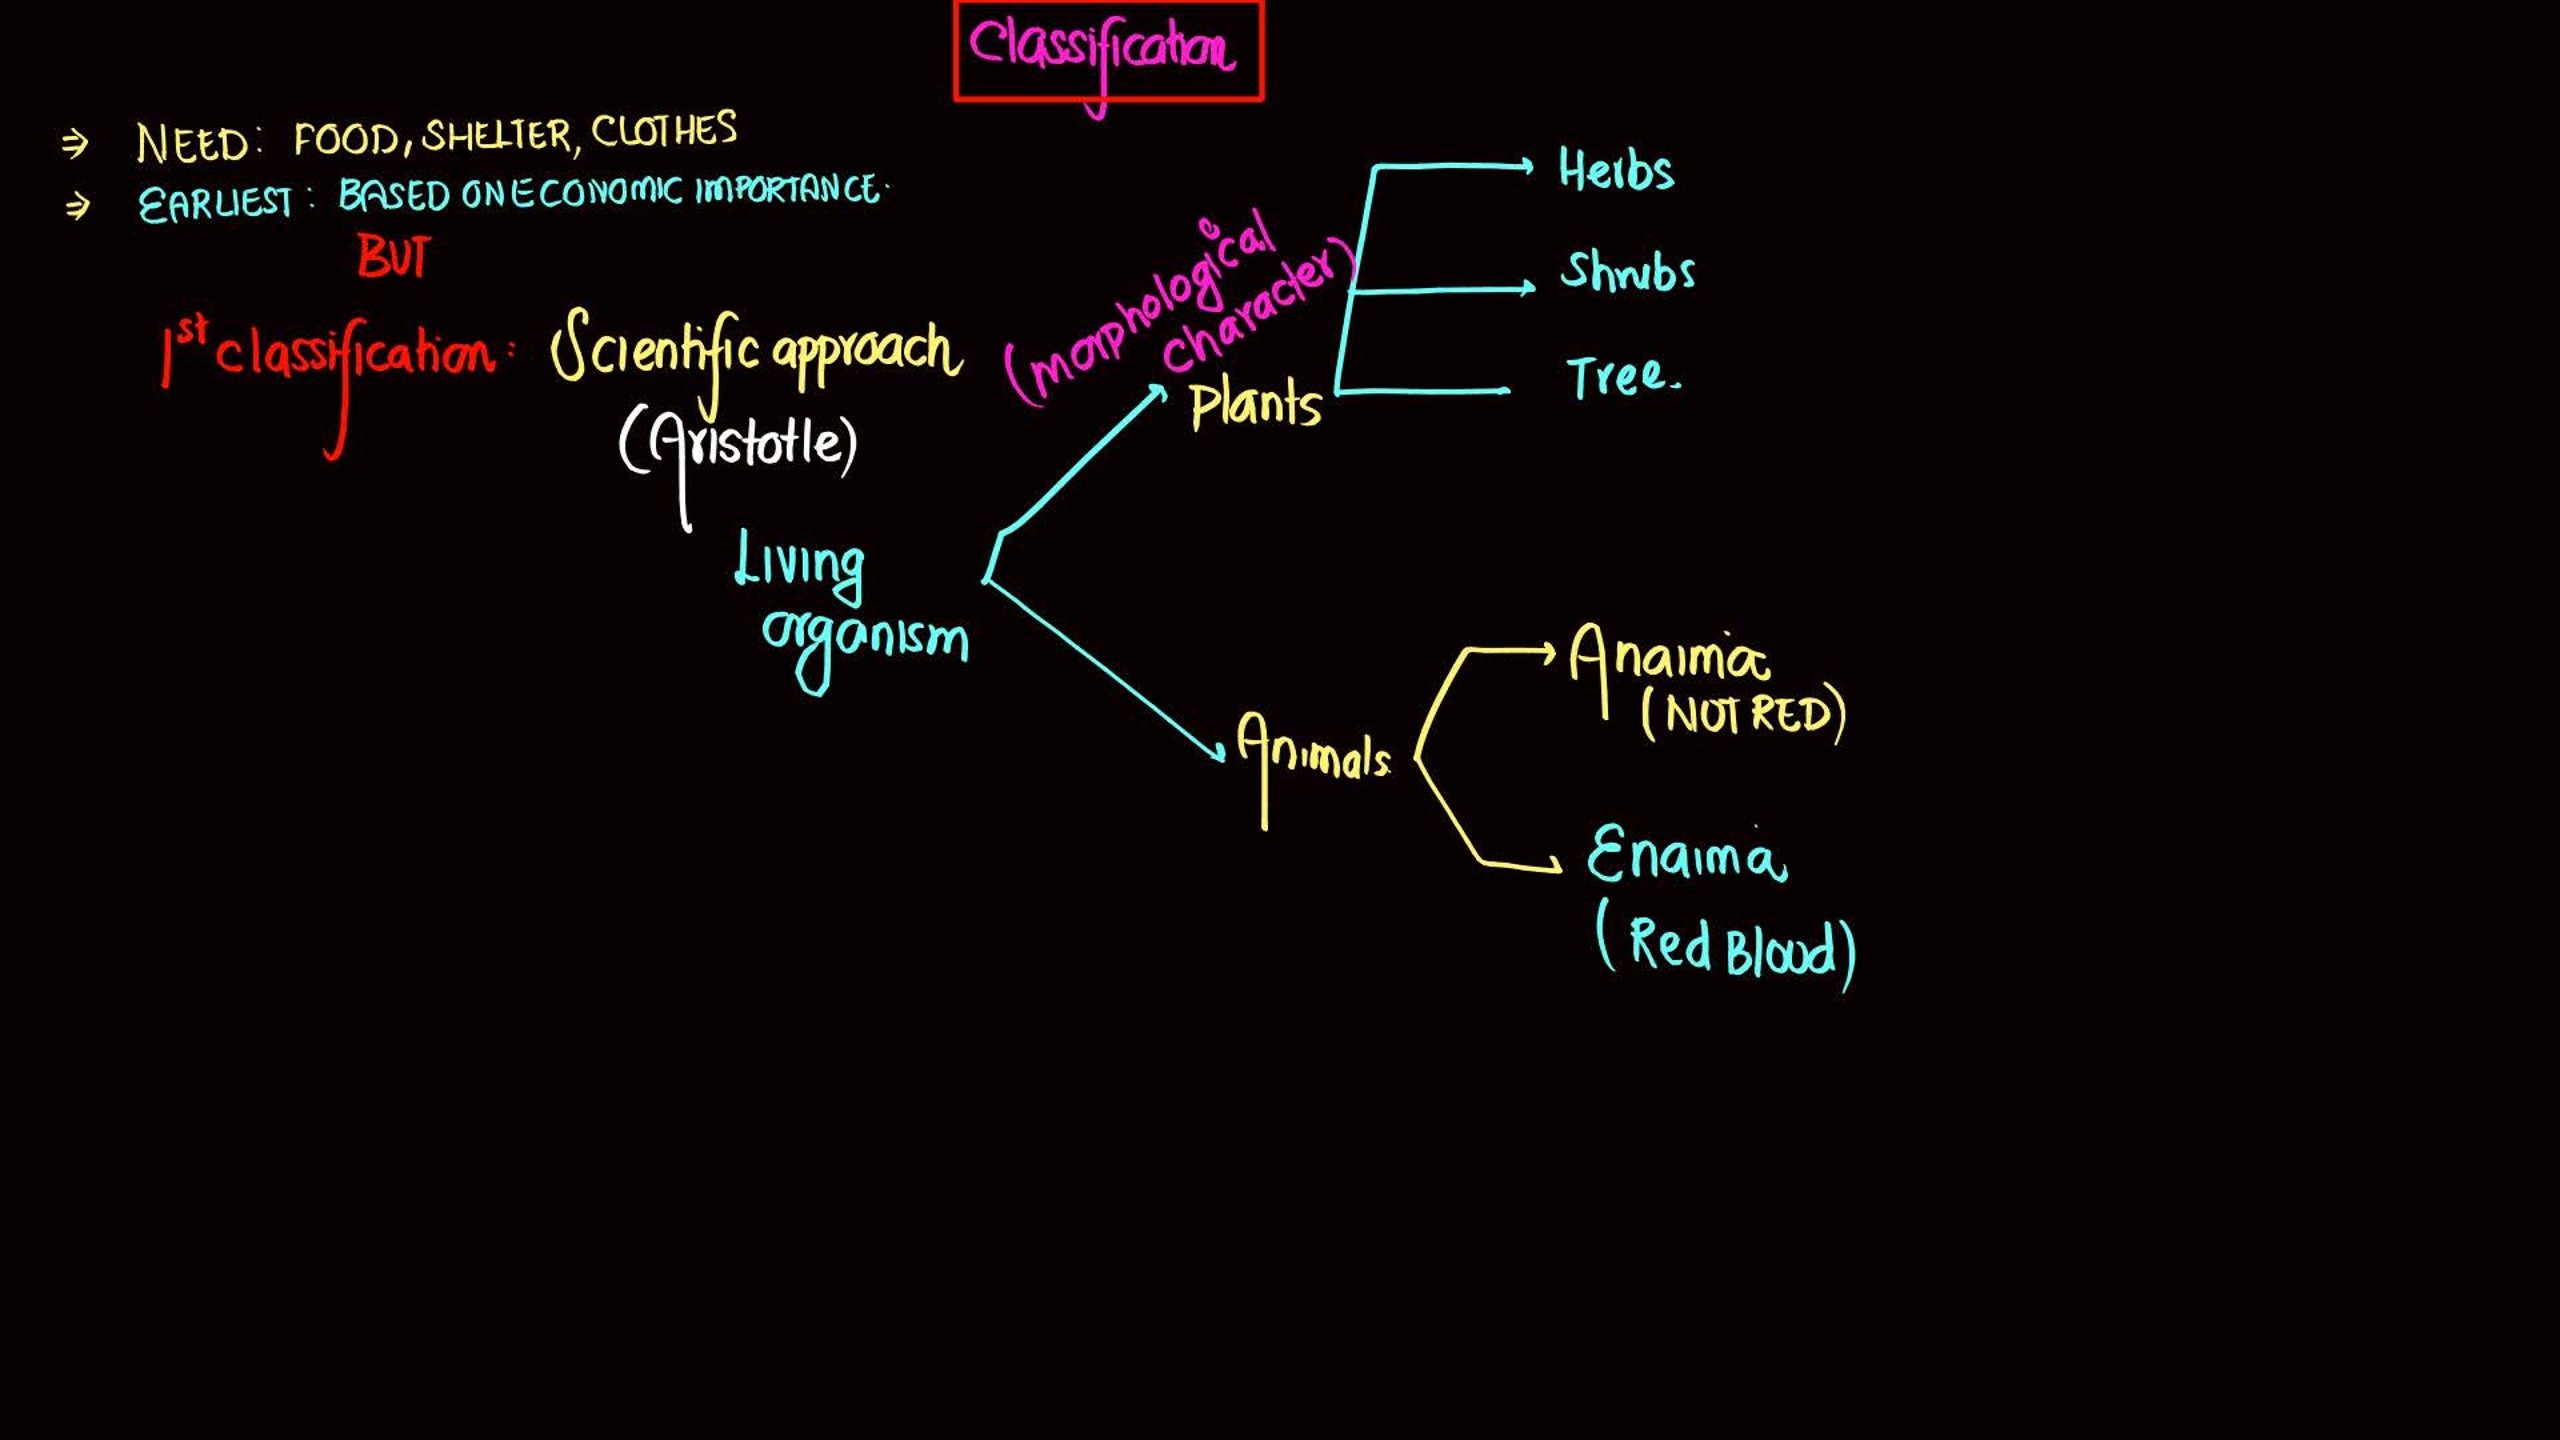 Classification
⇒ NEED: FOOD, SHELTER, CLOTHES
⇒ EARLIEST: BASED ON ECONOMIC IMPORTANCE.
BUT
1st classification: Scientific approach
(Aristotle)
Living
organism
(morphological
character)
Plants
Herbs
Shrubs
Tree.
Animals
Anaima
(NOT RED)
Enaima
(Red Blood)